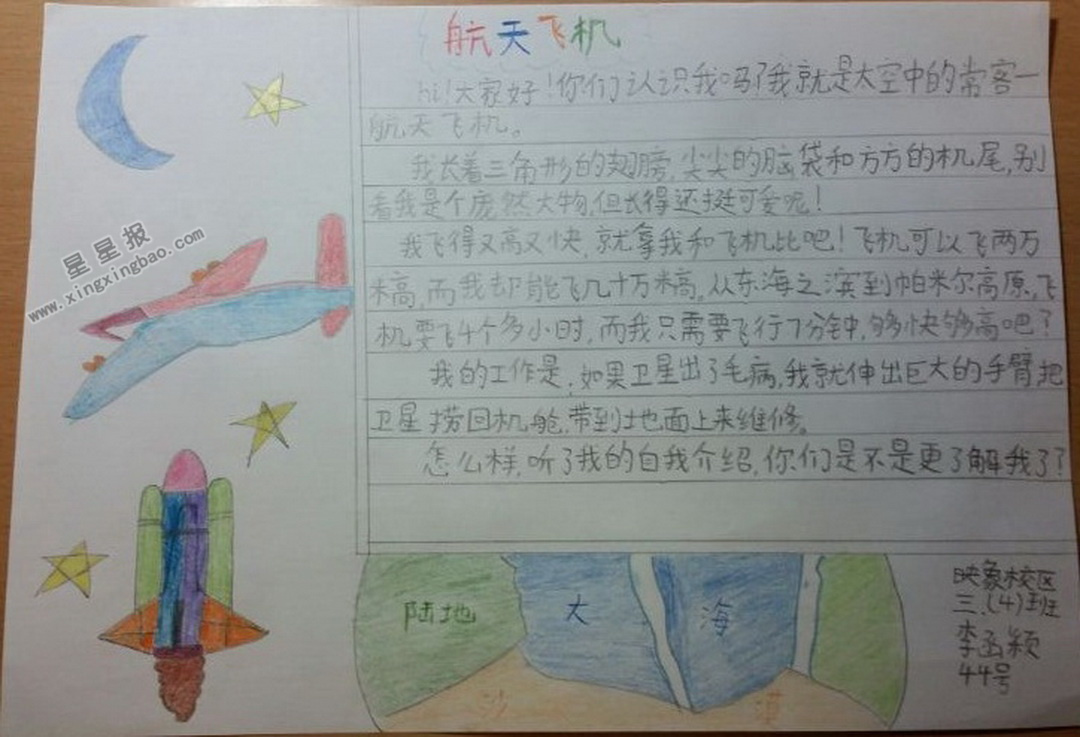 航天飞机
hi!大家好!你们认识我吗?我就是太空中的常客—
航天飞机。
我长着三角形的翅膀,尖尖的脑袋和方方的机尾,别
看我是个庞然大物,但长得还挺可爱呢!
我飞得又高又快,就拿我和飞机比吧!飞机可以飞两万
米高,而我却能飞几十万米高。从东海之滨到帕米尔高原,飞
机要飞4个多小时,而我只需要飞行7分钟,够快够高吧?
我的工作是,如果卫星出了毛病,我就伸出巨大的手臂把
卫星捞回机舱,带到地面上来维修。
怎么样,听了我的自我介绍,你们是不是更了解我了?
星星报
www.xingxingbao.com
陆地
大
海
沙
漠
映象校区
三.(4)班
李函颖
44号